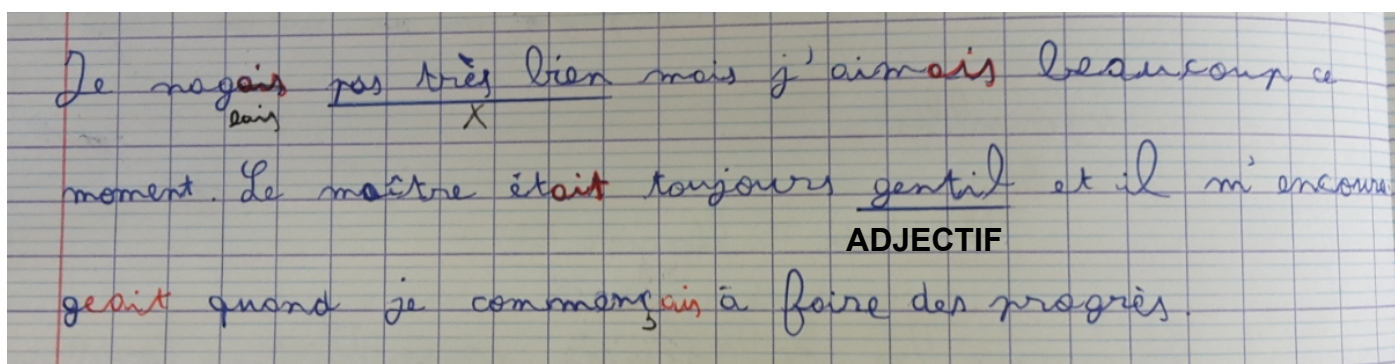 Je nageais pas très bien mais j'aimais beaucoup ce
eais X
moment. Le maître était toujours gentil et il m'encoura
ADJECTIF
geait quand je commençais à faire des progrès.